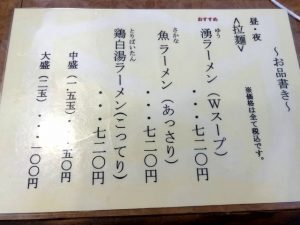 ～お品書き～
昼・夜
※価格は全て税込です。
<拉麺>
おすすめ
湧ラーメン（Wスープ）
ゆう
・・・七二〇円
魚ラーメン（あっさり）
さかな
・・・七二〇円
鶏白湯ラーメン（こってり）
とりぱいたん
・・・七二〇円
中盛（一．五玉）・・・五〇円
大盛（二玉）・・・一〇〇円